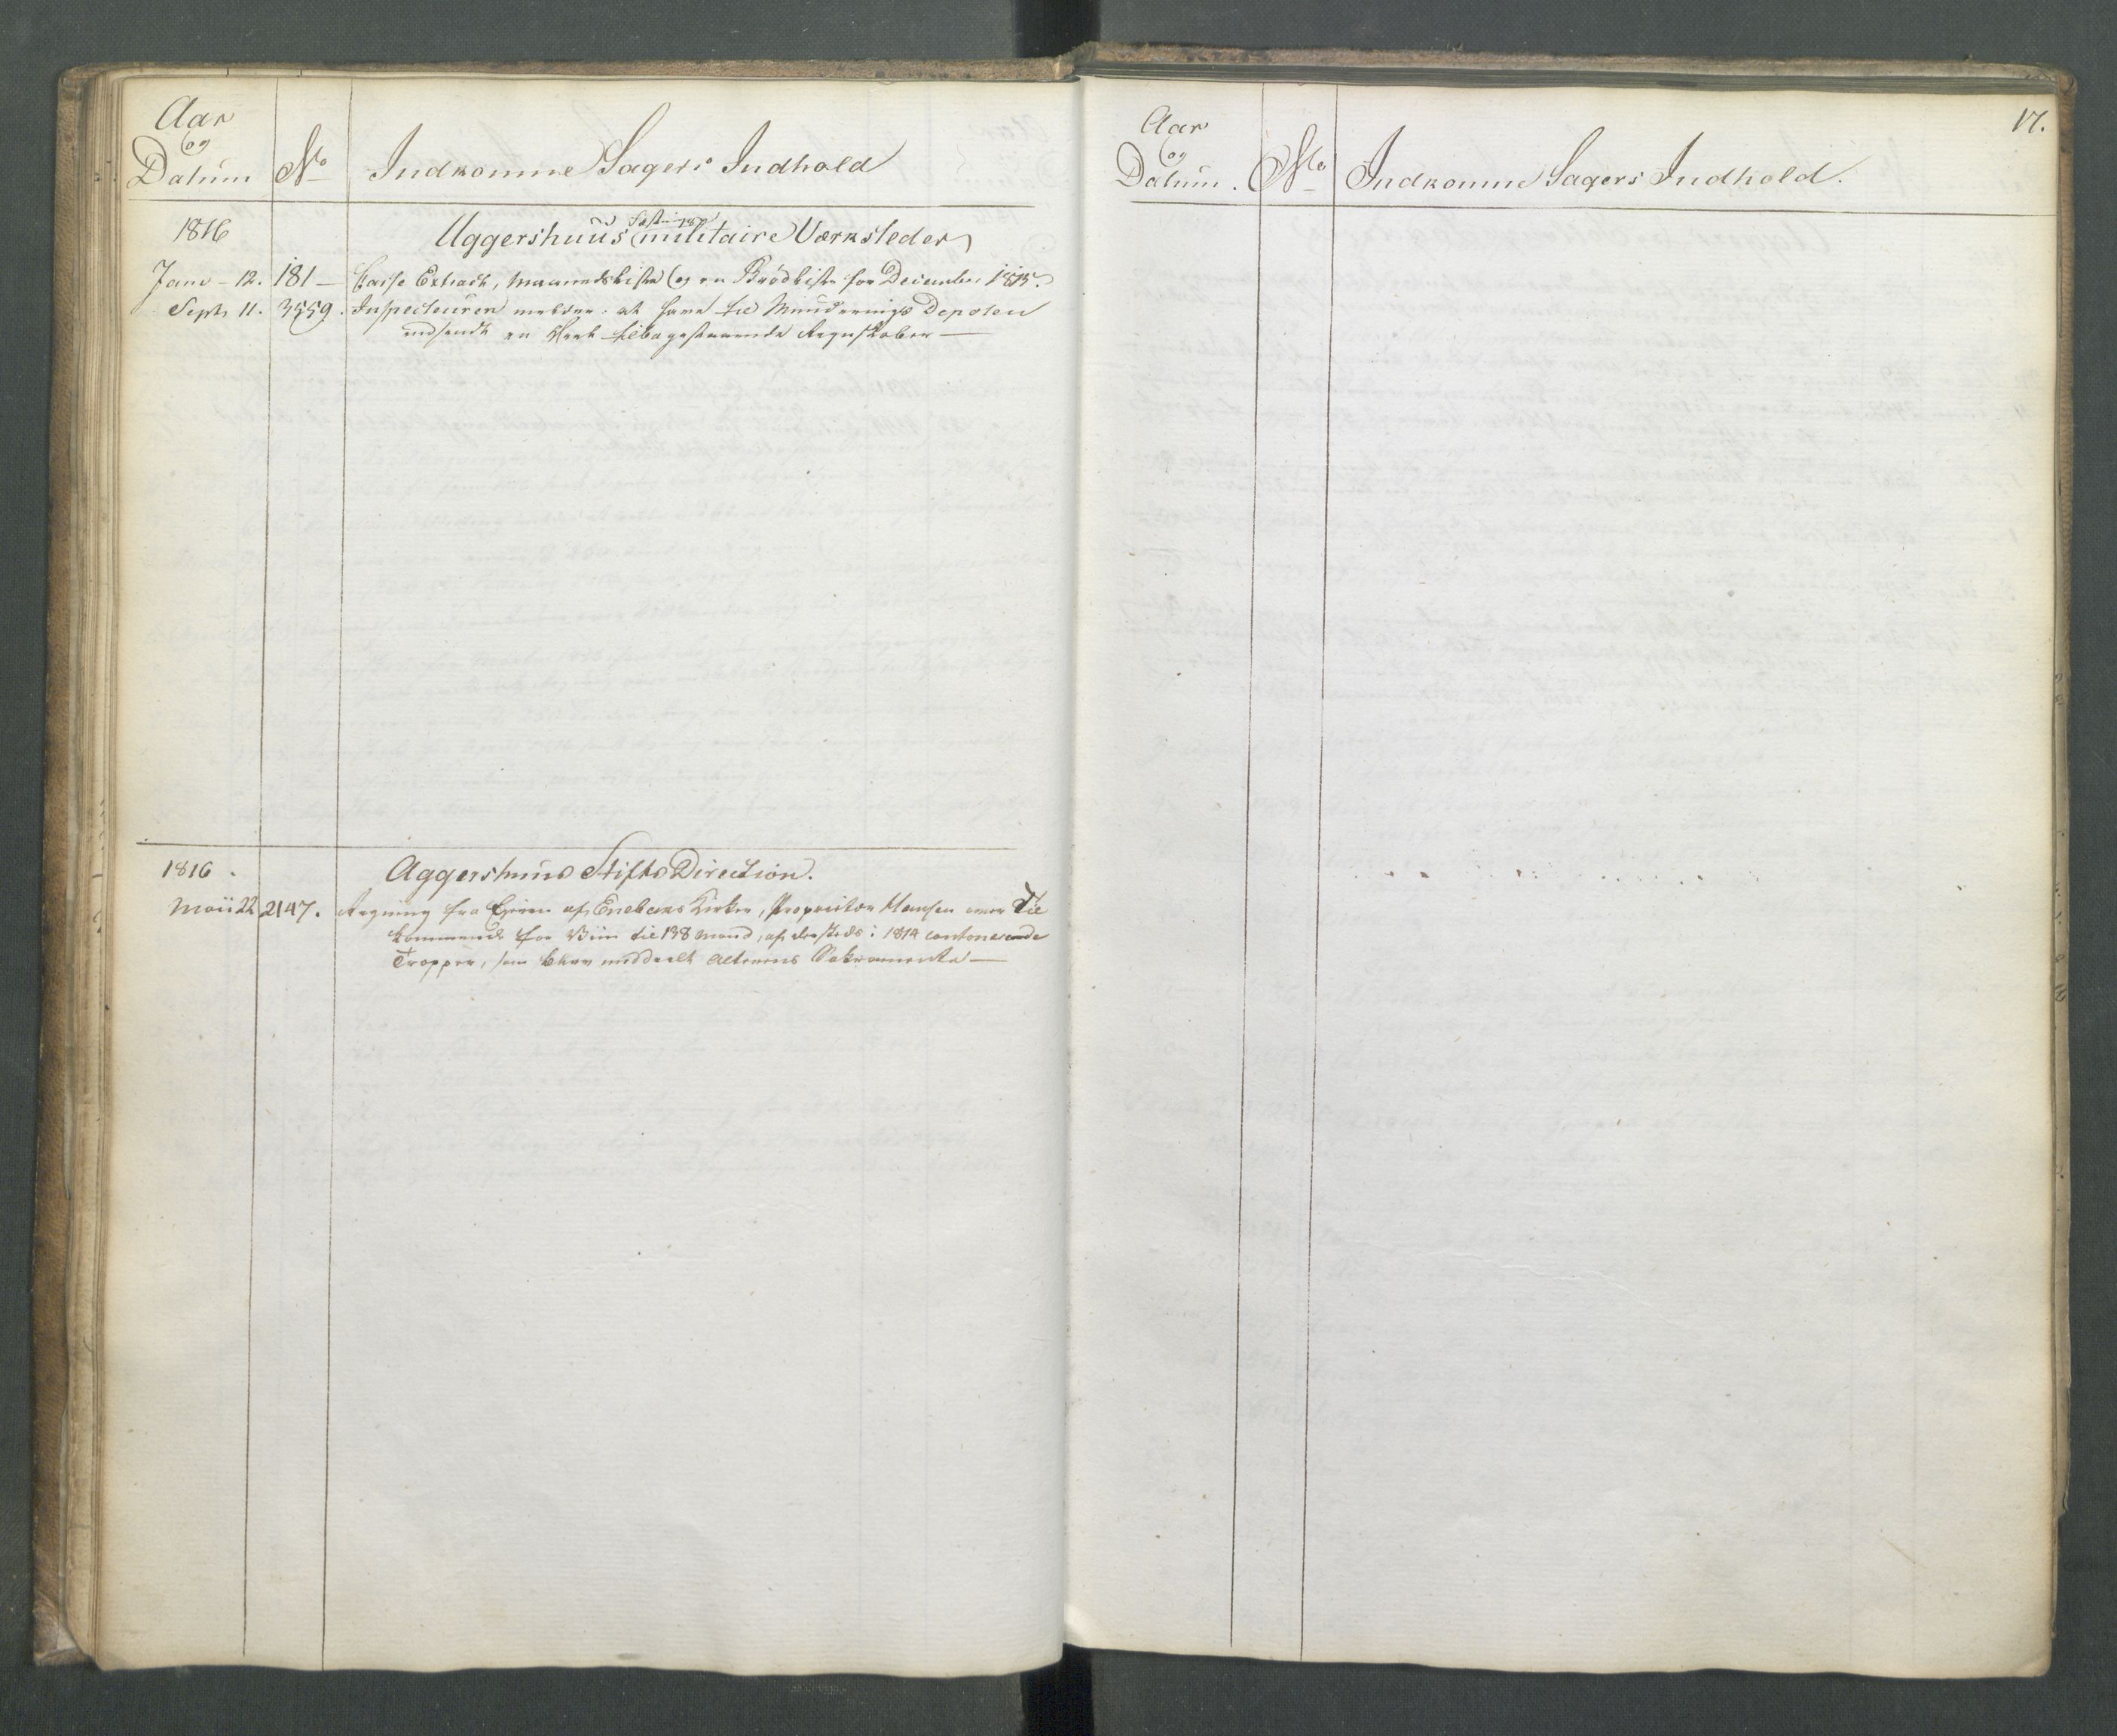 Aar
og
Datum No Indkomne Sagers Indhold
1816 Aggershuus Fæstnings militaire Værksteder
Janr 12. 181 — Casse Extract, Maanedsliste og en Brödliste for December 1815.
Septr 11. 3559. Inspecteuren melder at have til Munderings Depoten
indsendt en Deel tilbagestaaende Regnskaber —
1816 Aggershuus Stifts Direction.
Maii 22 2147. Regning fra Eieren af Enebaks Kirke, Proprietær Hansen over Til
kommende for Viin til 138 Mand, af dersteds i 1814 cantonerende
Tropper, som blev meddeelt Alterens Sakramente —
17.
Aar
og
Datum. No Indkomne Sagers Indhold.